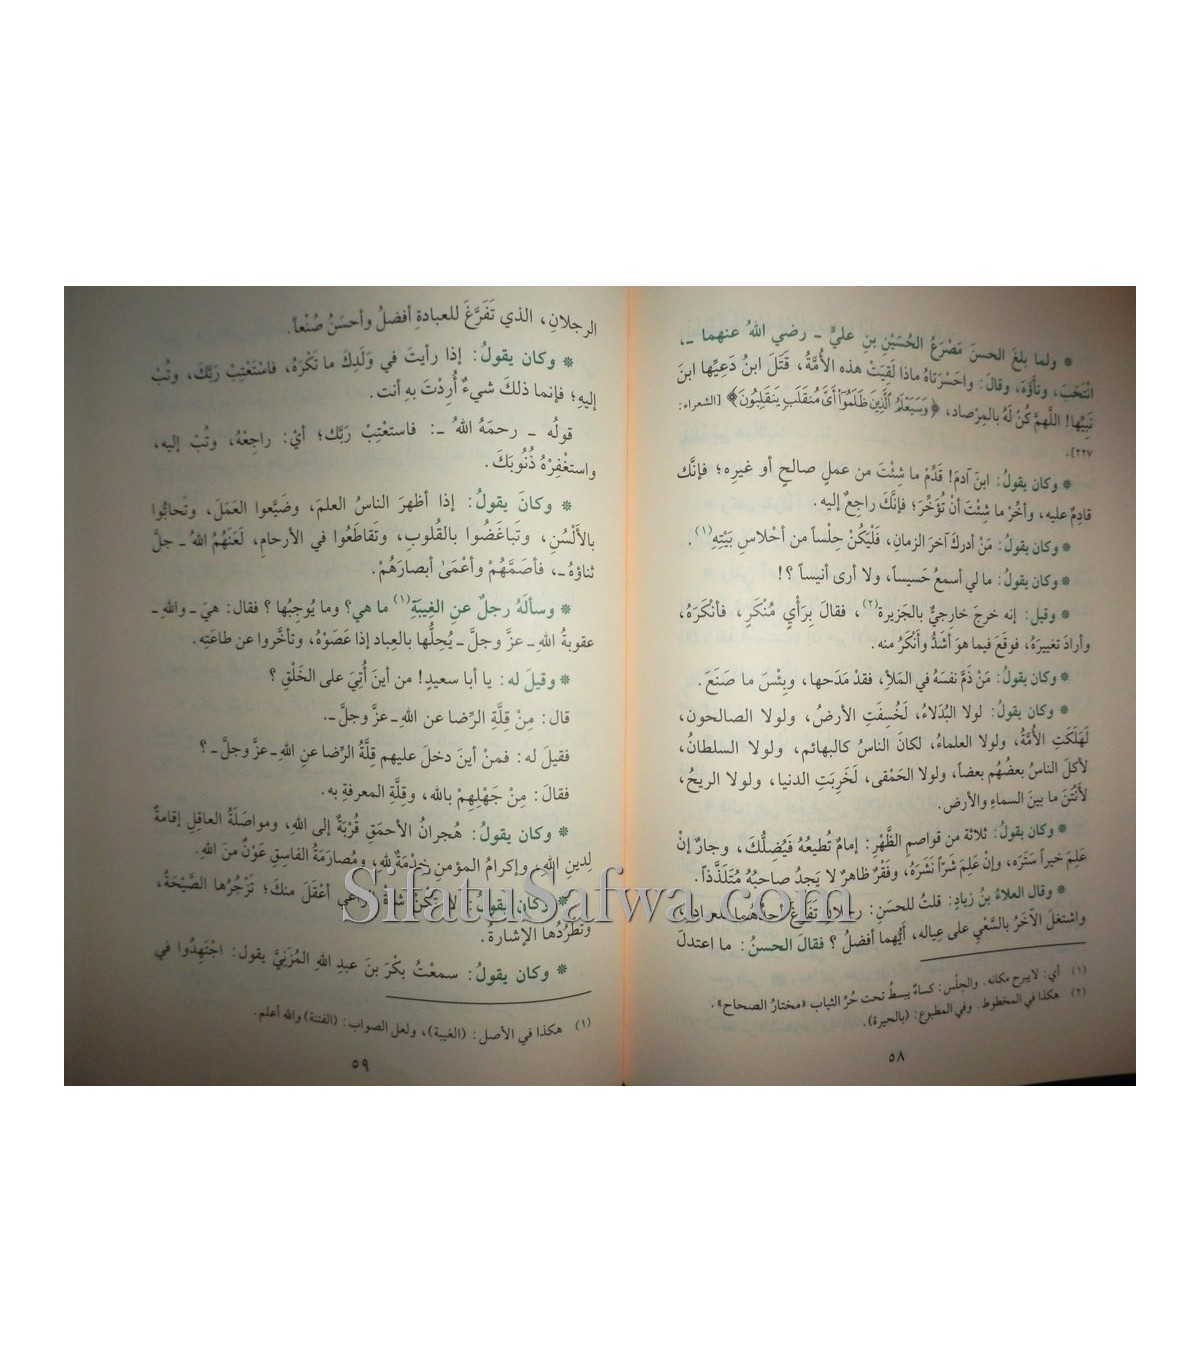 * ولما بلغ الحسنَ مَصْرَعُ الحُسَيْنِ بنِ عليٍّ ـ رضي اللهُ عنهما ـ،
انْتَحَبَ، وتأوَّهَ، وقالَ: واحَسْرَتاهُ ماذا لَقِيَتْ هذه الأُمَّةُ، قَتَلَ ابنُ دَعِيِّها ابنَ
نَبِيِّها! اللَّهمَّ كُنْ لَهُ بالمِرْصاد، ﴿وَسَيَعْلَمُ ٱلَّذِينَ ظَلَمُوٓا۟ أَىَّ مُنقَلَبٍ يَنقَلِبُونَ﴾ [الشعراء:
٢٢٧].
* وكان يقولُ: ابنَ آدمَ! قَدِّمْ ما شِئْتَ من عملٍ صالحٍ أو غيرِه؛ فإنَّك
قادِمٌ عليه، وأخِّرْ ما شِئْتَ أنْ تُؤَخِّرَ؛ فإنَّكَ راجِعٌ إليه.
* وكان يقولُ: مَنْ أدركَ آخرَ الزمانِ، فَلْيَكُنْ حِلْساً من أحْلاسِ بَيْتِهِ(١).
* وكان يقولُ: ما لي أسمعُ حَسيساً، ولا أرى أنيساً؟!
* وقيل: إنه خرجَ خارجِيٌّ بالجَزيرة(٢)، فقالَ بِرَأْيٍ مُنْكَرٍ، فأنْكَرَهُ،
وأرادَ تغييرَهُ، فوقَعَ فيما هوَ أشَدُّ وأَنْكَرُ منه.
* وكان يقولُ: مَنْ ذَمَّ نفسَهُ في المَلأِ، فقدْ مَدَحها، وبِئْسَ ما صَنَعَ.
* وكان يقولُ: لولا البُدَلاءُ، لَخُسِفَتِ الأرضُ، ولولا الصالحون،
لَهَلَكَتِ الأُمَّةُ، ولولا العلماءُ، لكانَ الناسُ كالبهائم، ولولا السلطانُ،
لأكلَ الناسُ بعضُهُم بعضاً، ولولا الحَمْقى، لَخَرِبَتِ الدنيا، ولولا الريحُ،
لأَنْتَنَ ما بينَ السماءِ والأرض.
* وكان يقولُ: ثلاثة من قواصِمِ الظَّهْرِ: إمامٌ تُطيعُهُ فَيُضِلُّكَ، وجارٌ إنْ
عَلِمَ خيراً سَتَرَه، وإنْ عَلِمَ شَرّاً نَشَرَهُ، وفَقْرٌ ظاهرٌ لا يَجدُ صاحبُهُ مُتَلَذَّذاً.
* وقال العلاءُ بنُ زيادٍ: قلتُ للحسَنِ: رجلانِ تَفَرَّغَ أحدُهما للعبادة،
واشتغلَ الآخَرُ بالسَّعْيِ على عِياله، أيُّهما أفضلُ؟ فقالَ الحسنُ: ما اعتدلَ
(١) أي: لا يبرح مكانه. والحِلْس: كساءٌ يبسطُ تحت حُرِّ الثياب «مختارُ الصحاح».
(٢) هكذا في المخطوط. وفي المطبوع: (بالحيرة).
٥٨
الرجلانِ، الذي تَفَرَّغَ للعبادةِ أفضلُ وأحسَنُ صُنْعاً.
* وكان يقولُ: إذا رأيتَ في وَلَدِكَ ما تَكْرَهُ، فاسْتَعْتِبْ رَبَّكَ، وتُبْ
إليهِ؛ فإنما ذلكَ شيءٌ أُرِدْتَ به أنت.
قولُه ـ رحمَهُ اللهُ ـ: فاستعْتِبْ رَبَّك؛ أيْ: راجِعْهُ، وتُبْ إليه،
واستغْفِرْهُ ذُنُوبَكَ.
* وكانَ يقولُ: إذا أظهرَ الناسُ العلمَ، وضَيَّعوا العَمَلَ، وتَحابُّوا
بالأَلْسُنِ، وتَباغَضُوا بالقُلوبِ، وتَقاطَعُوا في الأرحامِ، لَعَنَهُمُ اللهُ ـ جلَّ
ثناؤهُ ـ، فأصَمَّهُمْ وأعْمَىٰ أبصارَهُمْ.
* وسألَهُ رجلٌ عنِ الغِيبَةِ(١) ما هي؟ وما يُوجِبُها؟ فقال: هيَ ـ واللهِ ـ
عقوبةُ اللهِ ـ عزَّ وجلَّ ـ يُحِلُّها بالعِباد إذا عَصَوْهُ، وتأخَّروا عن طاعَتِه.
* وقيلَ له: يا أبا سعيدٍ! من أينَ أُتِيَ على الخَلْقِ؟
قال: مِنْ قِلَّةِ الرِّضا عن اللهِ ـ عزَّ وجلَّ ـ.
فقيلَ له: فمنْ أينَ دخلَ عليهم قِلَّةُ الرِّضا عنِ اللهِ ـ عزَّ وجلَّ ـ؟
فقالَ: مِنْ جَهْلِهِمْ بالله، وقِلَّةِ المعرفةِ به.
* وكان يقولُ: هُجرانُ الأحمَقِ قُرْبَةٌ إلى اللهِ، ومواصَلَةُ العاقِلِ إقامةٌ
لِدينِ اللهِ، وإكرامُ المؤمنِ خِدْمَةٌ للهِ، ومُصارَمَةُ الفاسِقِ عَوْنٌ منَ اللهِ.
* وكان يقولُ: لا تكُنْ شاةُ الراعي أعْقَلَ منكَ؛ تَزْجُرُها الصَّيْحَةُ،
وتَطْرُدُها الإشارةُ.
* وكان يقولُ: سمعْتُ بَكْرَ بنَ عبدِ اللهِ المُزَنِيَّ يقول: اجْتَهِدُوا في
(١) هكذا في الأصل: (الغيبة)، ولعل الصواب: (الفتنة) والله أعلم.
٥٩
SifatuSafwa.com